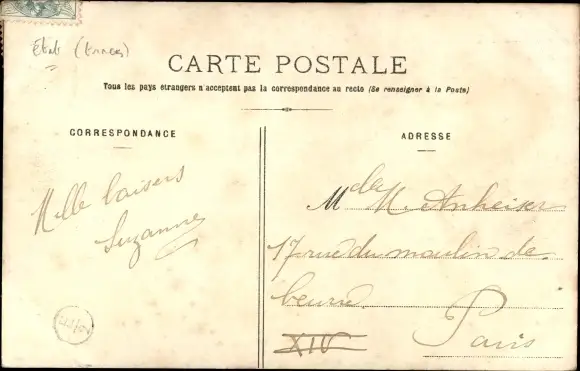 CARTE POSTALE
Tous les pays étrangers n'acceptent pas la correspondance au recto (Se renseigner à la Poste)
CORRESPONDANCE
Mille baisers
Suzanne
ADRESSE
Mdlle M. Anheiser
17 rue du moulin de
beurre
Paris
XIV